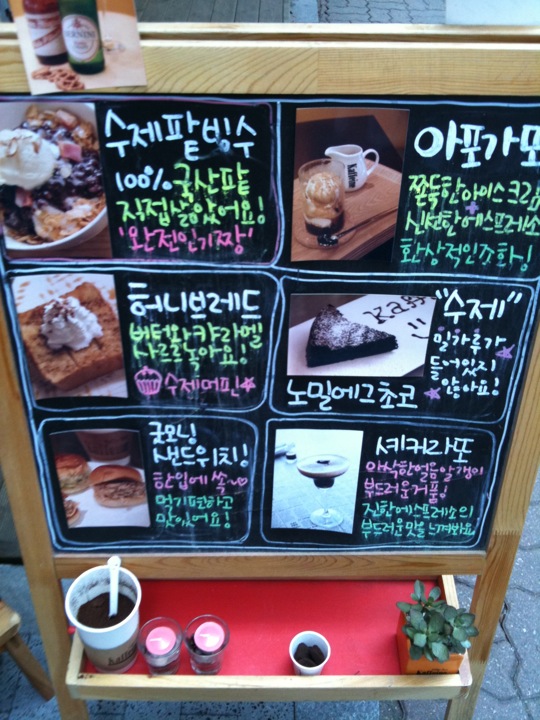 수제팥빙수
100% 국산팥
직접삶았어요!
'완전인기짱'
아포가또
쫀득한아이스크림
+
신선한에스프레소
환상적인조화!
Kaldin
허니브레드
버터와카라멜
사르르녹아요!
수제머핀
"수제"
밀가루가
들어있지
않아요!
노밀에그초코
굿모닝
샌드위치!
한입에쏙~
먹기편하고
맛있어요!
샤커라또
아삭한얼음알갱이
부드러운거품!
진한에스프레소의
부드러운맛을 느껴봐요